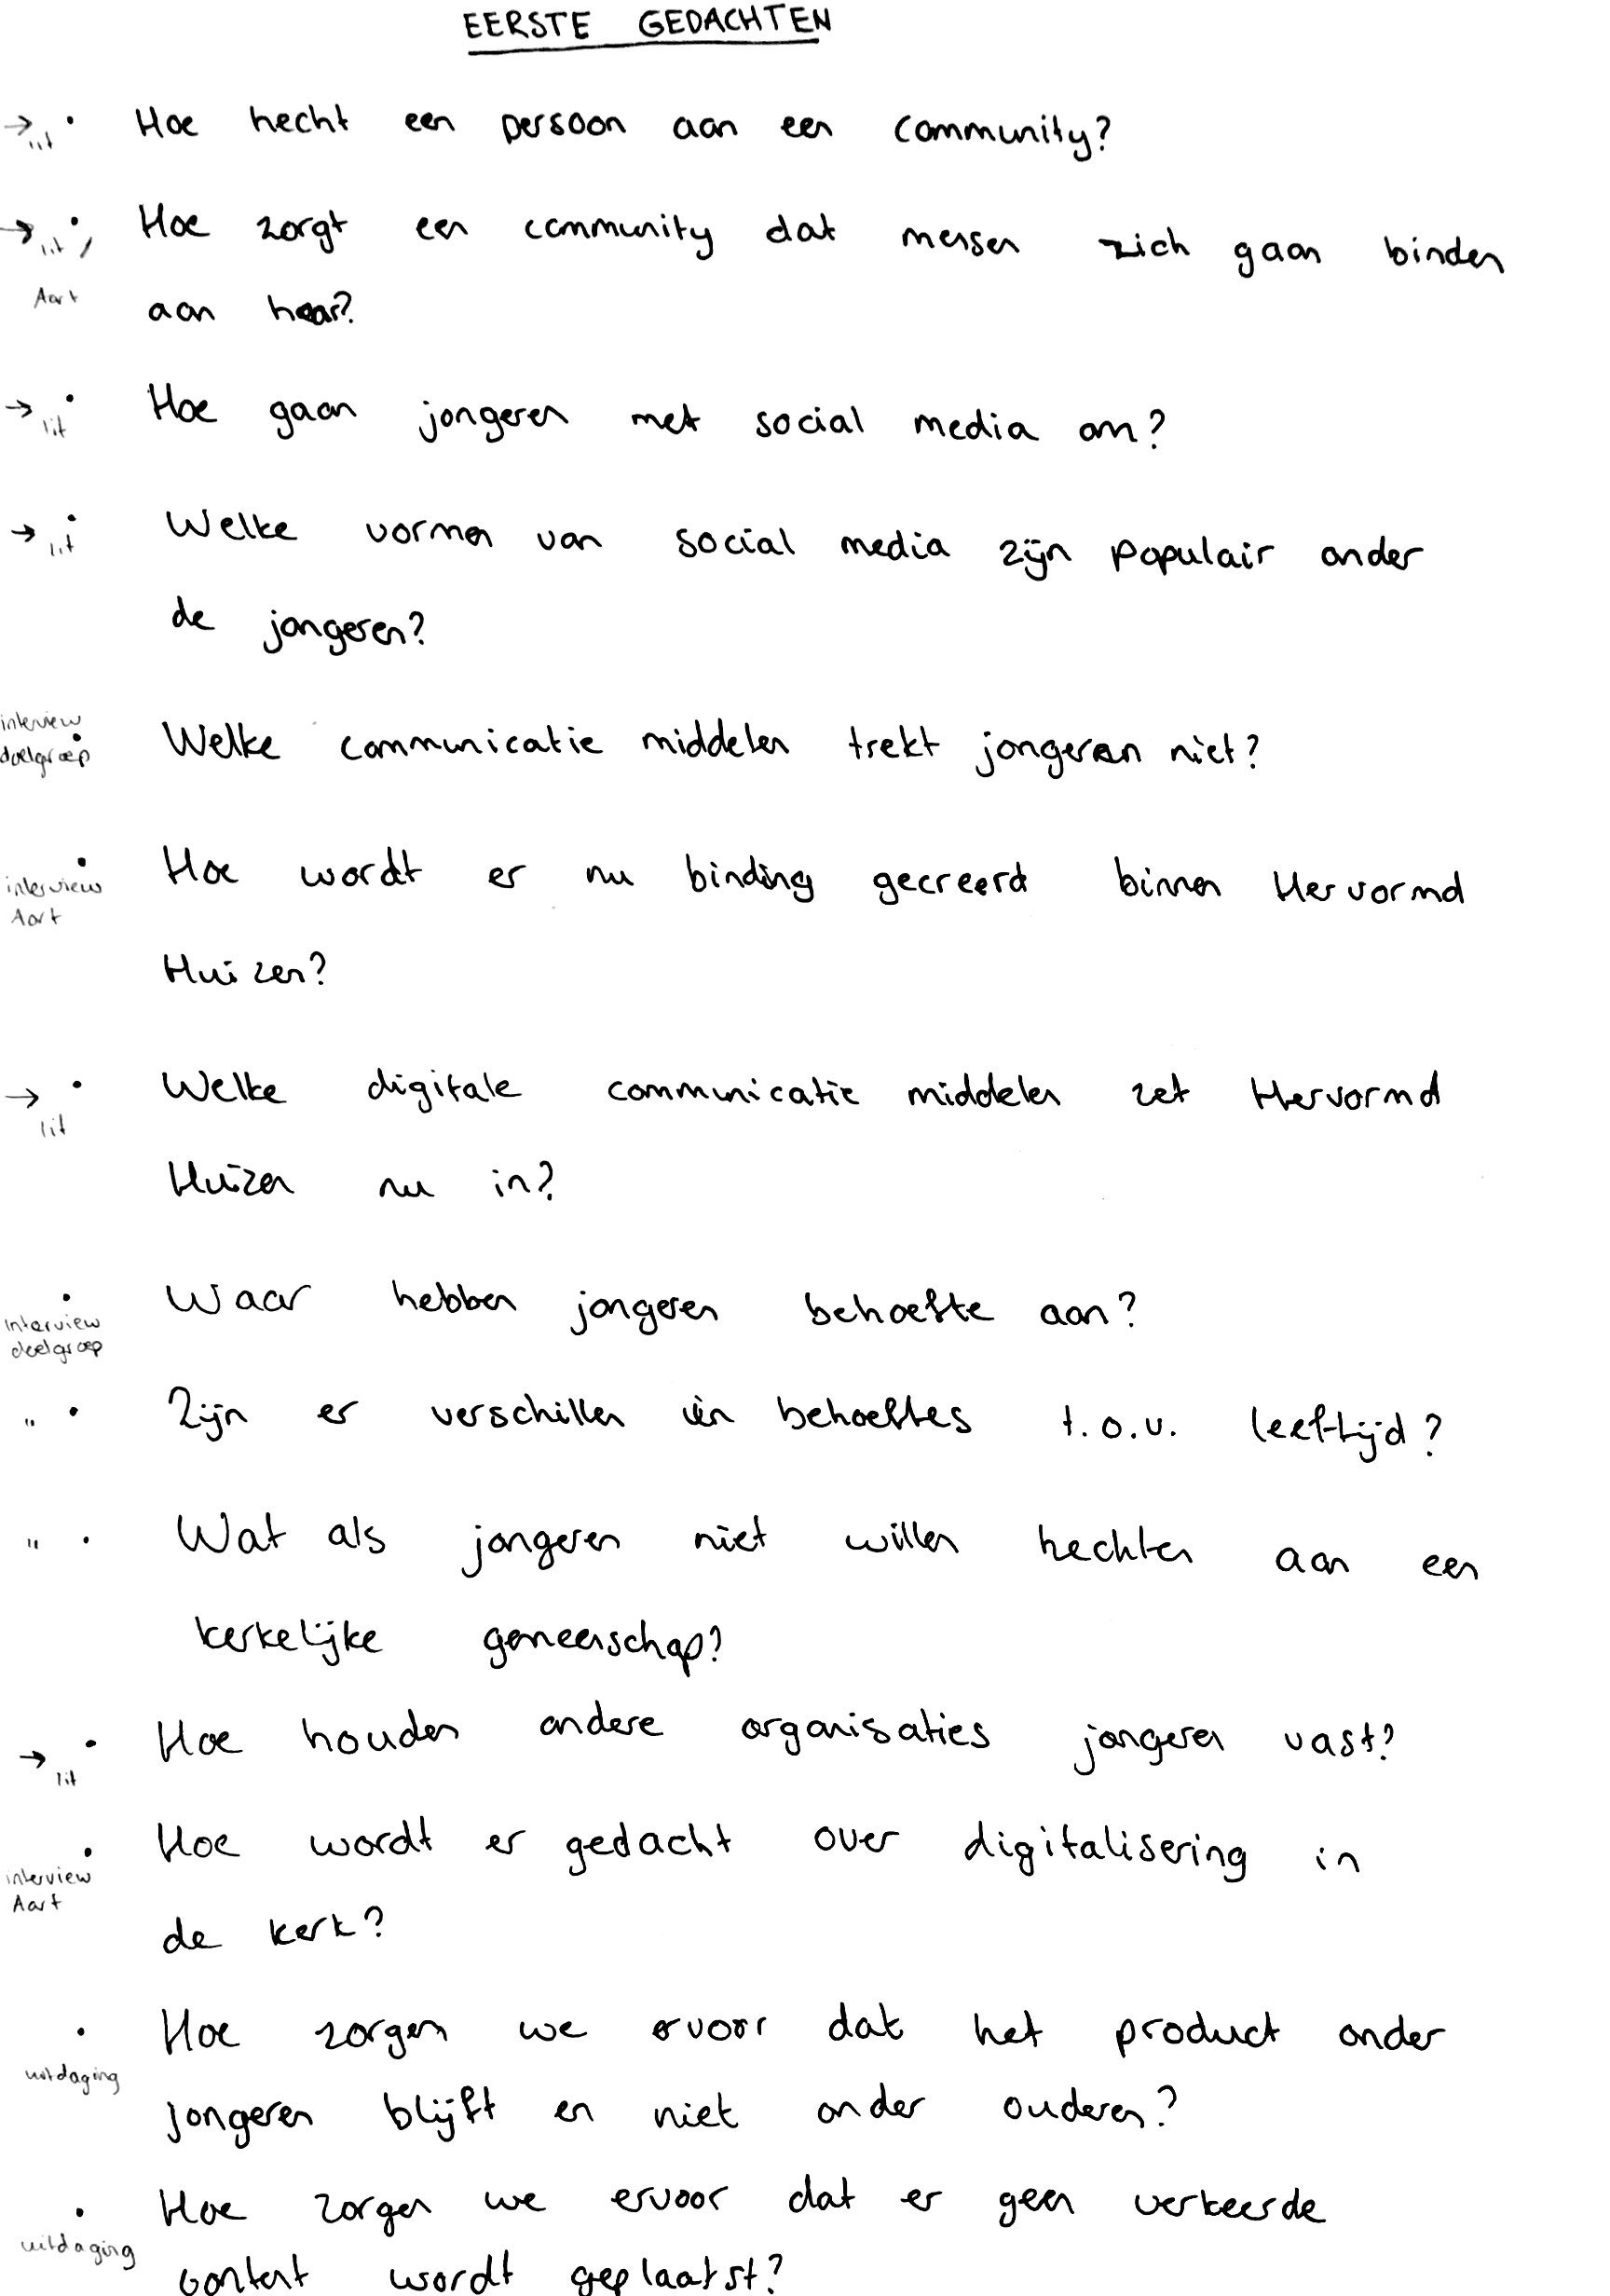 EERSTE GEDACHTEN
→ lit • Hoe hecht een persoon aan een community?
→ lit / • Hoe zorgt een community dat mensen zich gaan binden
Aart aan haar?
→ lit • Hoe gaan jongeren met social media om?
→ lit • Welke vormen van social media zijn populair onder
de jongeren?
interview
doelgroep • Welke communicatie middelen trekt jongeren niet?
• Hoe wordt er nu binding gecreerd binnen Hervormd
interview
Aart
Huizen?
→ lit • Welke digitale communicatie middelen zet Hervormd
Huizen nu in?
• Waar hebben jongeren behoefte aan?
Interview
doelgroep
" • Zijn er verschillen in behoeftes t.o.v. leeftijd?
" • Wat als jongeren niet willen hechten aan een
kerkelijke gemeenschap?
→ lit • Hoe houden andere organisaties jongeren vast?
• Hoe wordt er gedacht over digitalisering in
interview
Aart
de kerk?
• Hoe zorgen we ervoor dat het product onder
uitdaging
jongeren blijft en niet onder ouderen?
• Hoe zorgen we ervoor dat er geen verkeerde
uitdaging
content wordt geplaatst?